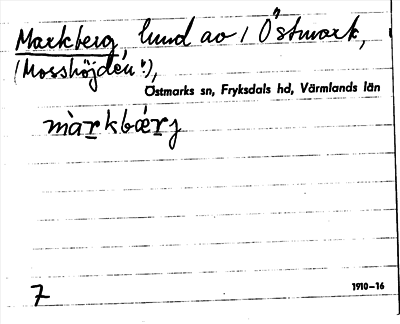 Markberg, lund av i Östmark,
(Mosshöjden!),
Östmarks sn, Fryksdals hd, Värmlands län
màrkbǽrj
7
1910–16